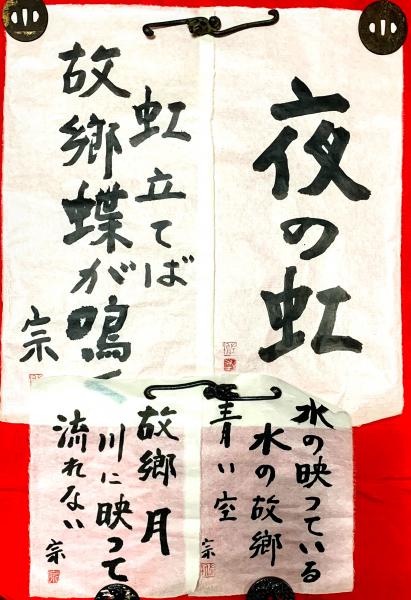 夜の虹
虹立てば
故郷蝶が鳴
宗
水の映っている
水の故郷
青い空
宗
故郷 月
川に映って
流れない
宗